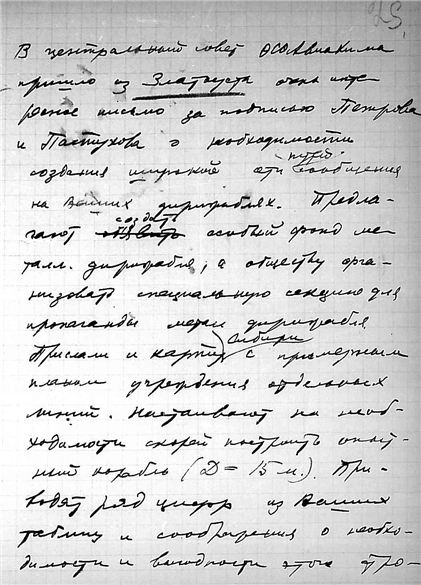 25
В центральный совет Осоавиахима
пришло из Златоуста очень инте-
ресное письмо за подписью Петрова
и Пастухова о необходимости
создания широкой сети путей сообщения
на Ваших дирижаблях. Предла-
гают создать особый фонд ме-
талл. дирижабля, а обществу орга-
низовать специальную секцию для
пропаганды метал дирижабля
Прислали и карту Сибири с примерным
планом учреждения отдельных
линий. Настаивают на необ-
ходимости скорей построить опыт-
ный корабль (D = 15 м.). При-
водят ряд цифр из Ваших
таблиц и соображения о необхо-
димости и выгодности этого